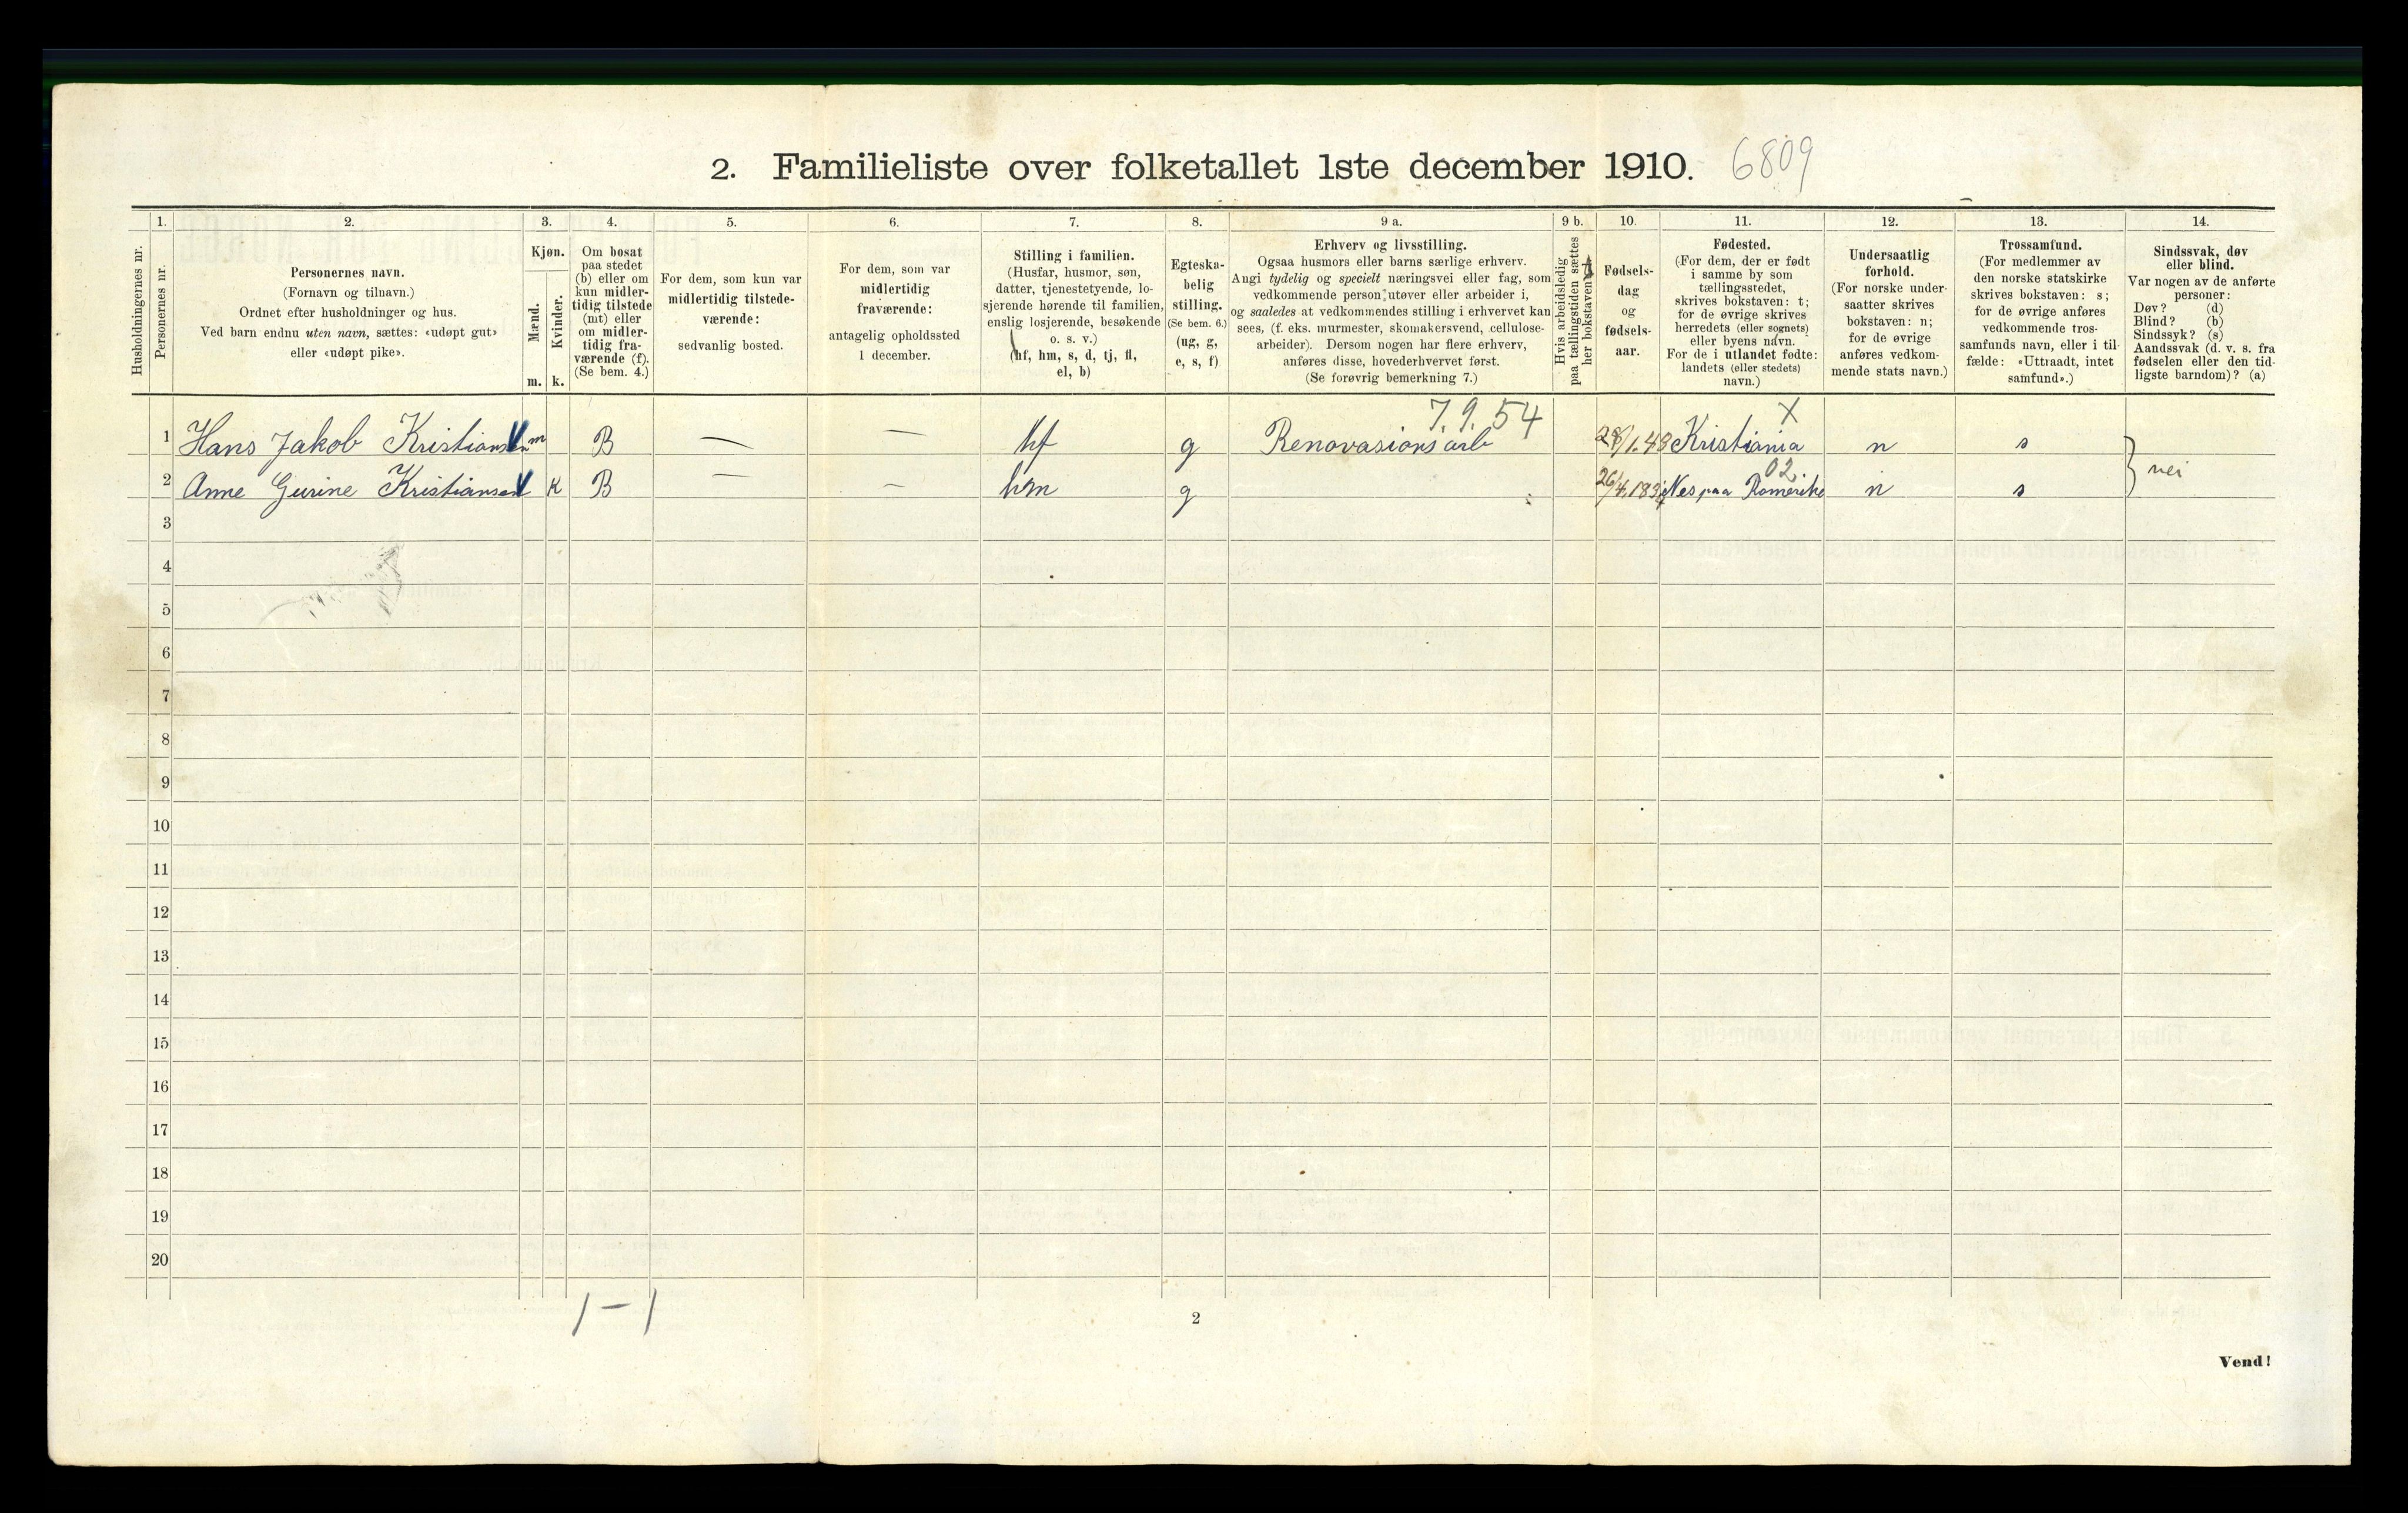 2. Familieliste over folketallet 1ste december 1910. 6809
Husholdningernes nr.
1.
Personernes nr.
2.
Personernes navn.
(Fornavn og tilnavn.)
Ordnet efter husholdninger og hus.
Ved barn endnu uten navn, sættes: «udøpt gut»
eller «udøpt pike».
3.
Kjøn.
Mænd.
m.
Kvinder.
k.
4.
Om bosat
paa stedet
(b) eller om
kun midler-
tidig tilstede
(mt) eller
om midler-
tidig fra-
værende (f).
(Se bem. 4.)
5.
For dem, som kun var
midlertidig tilstede-
værende:
sedvanlig bosted.
6.
For dem, som var
midlertidig
fraværende:
antagelig opholdssted
1 december.
7.
Stilling i familien.
(Husfar, husmor, søn,
datter, tjenestetyende, lo-
sjerende hørende til familien,
enslig losjerende, besøkende
o. s. v.)
(hf, hm, s, d, tj, fl,
el, b)
8.
Egteska-
belig
stilling.
(Se bem. 6.)
(ug, g,
e, s, f)
9 a.
Erhverv og livsstilling.
Ogsaa husmors eller barns særlige erhverv.
Angi tydelig og specielt næringsvei eller fag, som
vedkommende person utøver eller arbeider i,
og saaledes at vedkommendes stilling i erhvervet kan
sees, (f. eks. murmester, skomakersvend, cellulose-
arbeider). Dersom nogen har flere erhverv,
anføres disse, hovederhvervet først.
(Se forøvrig bemerkning 7.)
9 b.
Hvis arbeidsledig
paa tællingstiden sættes
her bokstaven
10.
Fødsels-
dag
og
fødsels-
aar.
11.
Fødested.
(For dem, der er født
i samme by som
tællingsstedet,
skrives bokstaven: t;
for de øvrige skrives
herredets (eller sognets)
eller byens navn.
For de i utlandet fødte:
landets (eller stedets)
navn.)
12.
Undersaatlig
forhold.
(For norske under-
saatter skrives
bokstaven: n;
for de øvrige
anføres vedkom-
mende stats navn.)
13.
Trossamfund.
(For medlemmer av
den norske statskirke
skrives bokstaven: s;
for de øvrige anføres
vedkommende tros-
samfunds navn, eller i til-
fælde: «Uttraadt, intet
samfund».)
14.
Sindssvak, døv
eller blind.
Var nogen av de anførte
personer:
Døv? (d)
Blind? (b)
Sindssyk? (s)
Aandssvak (d. v. s. fra
fødselen eller den tid-
ligste barndom)? (a)
7.9.54 X
1 Hans Jakob Kristiansen m B — — hf g Renovasions arb 28/1.43 Kristiania n s
02
2 Anne Gurine Kristiansen K B — — hm g Nes paa Romerike n s
nei
3
4
5
6
7
8
9
10
11
12
13
14
15
16
17
18
19
20
1 – 1
2
Vend!